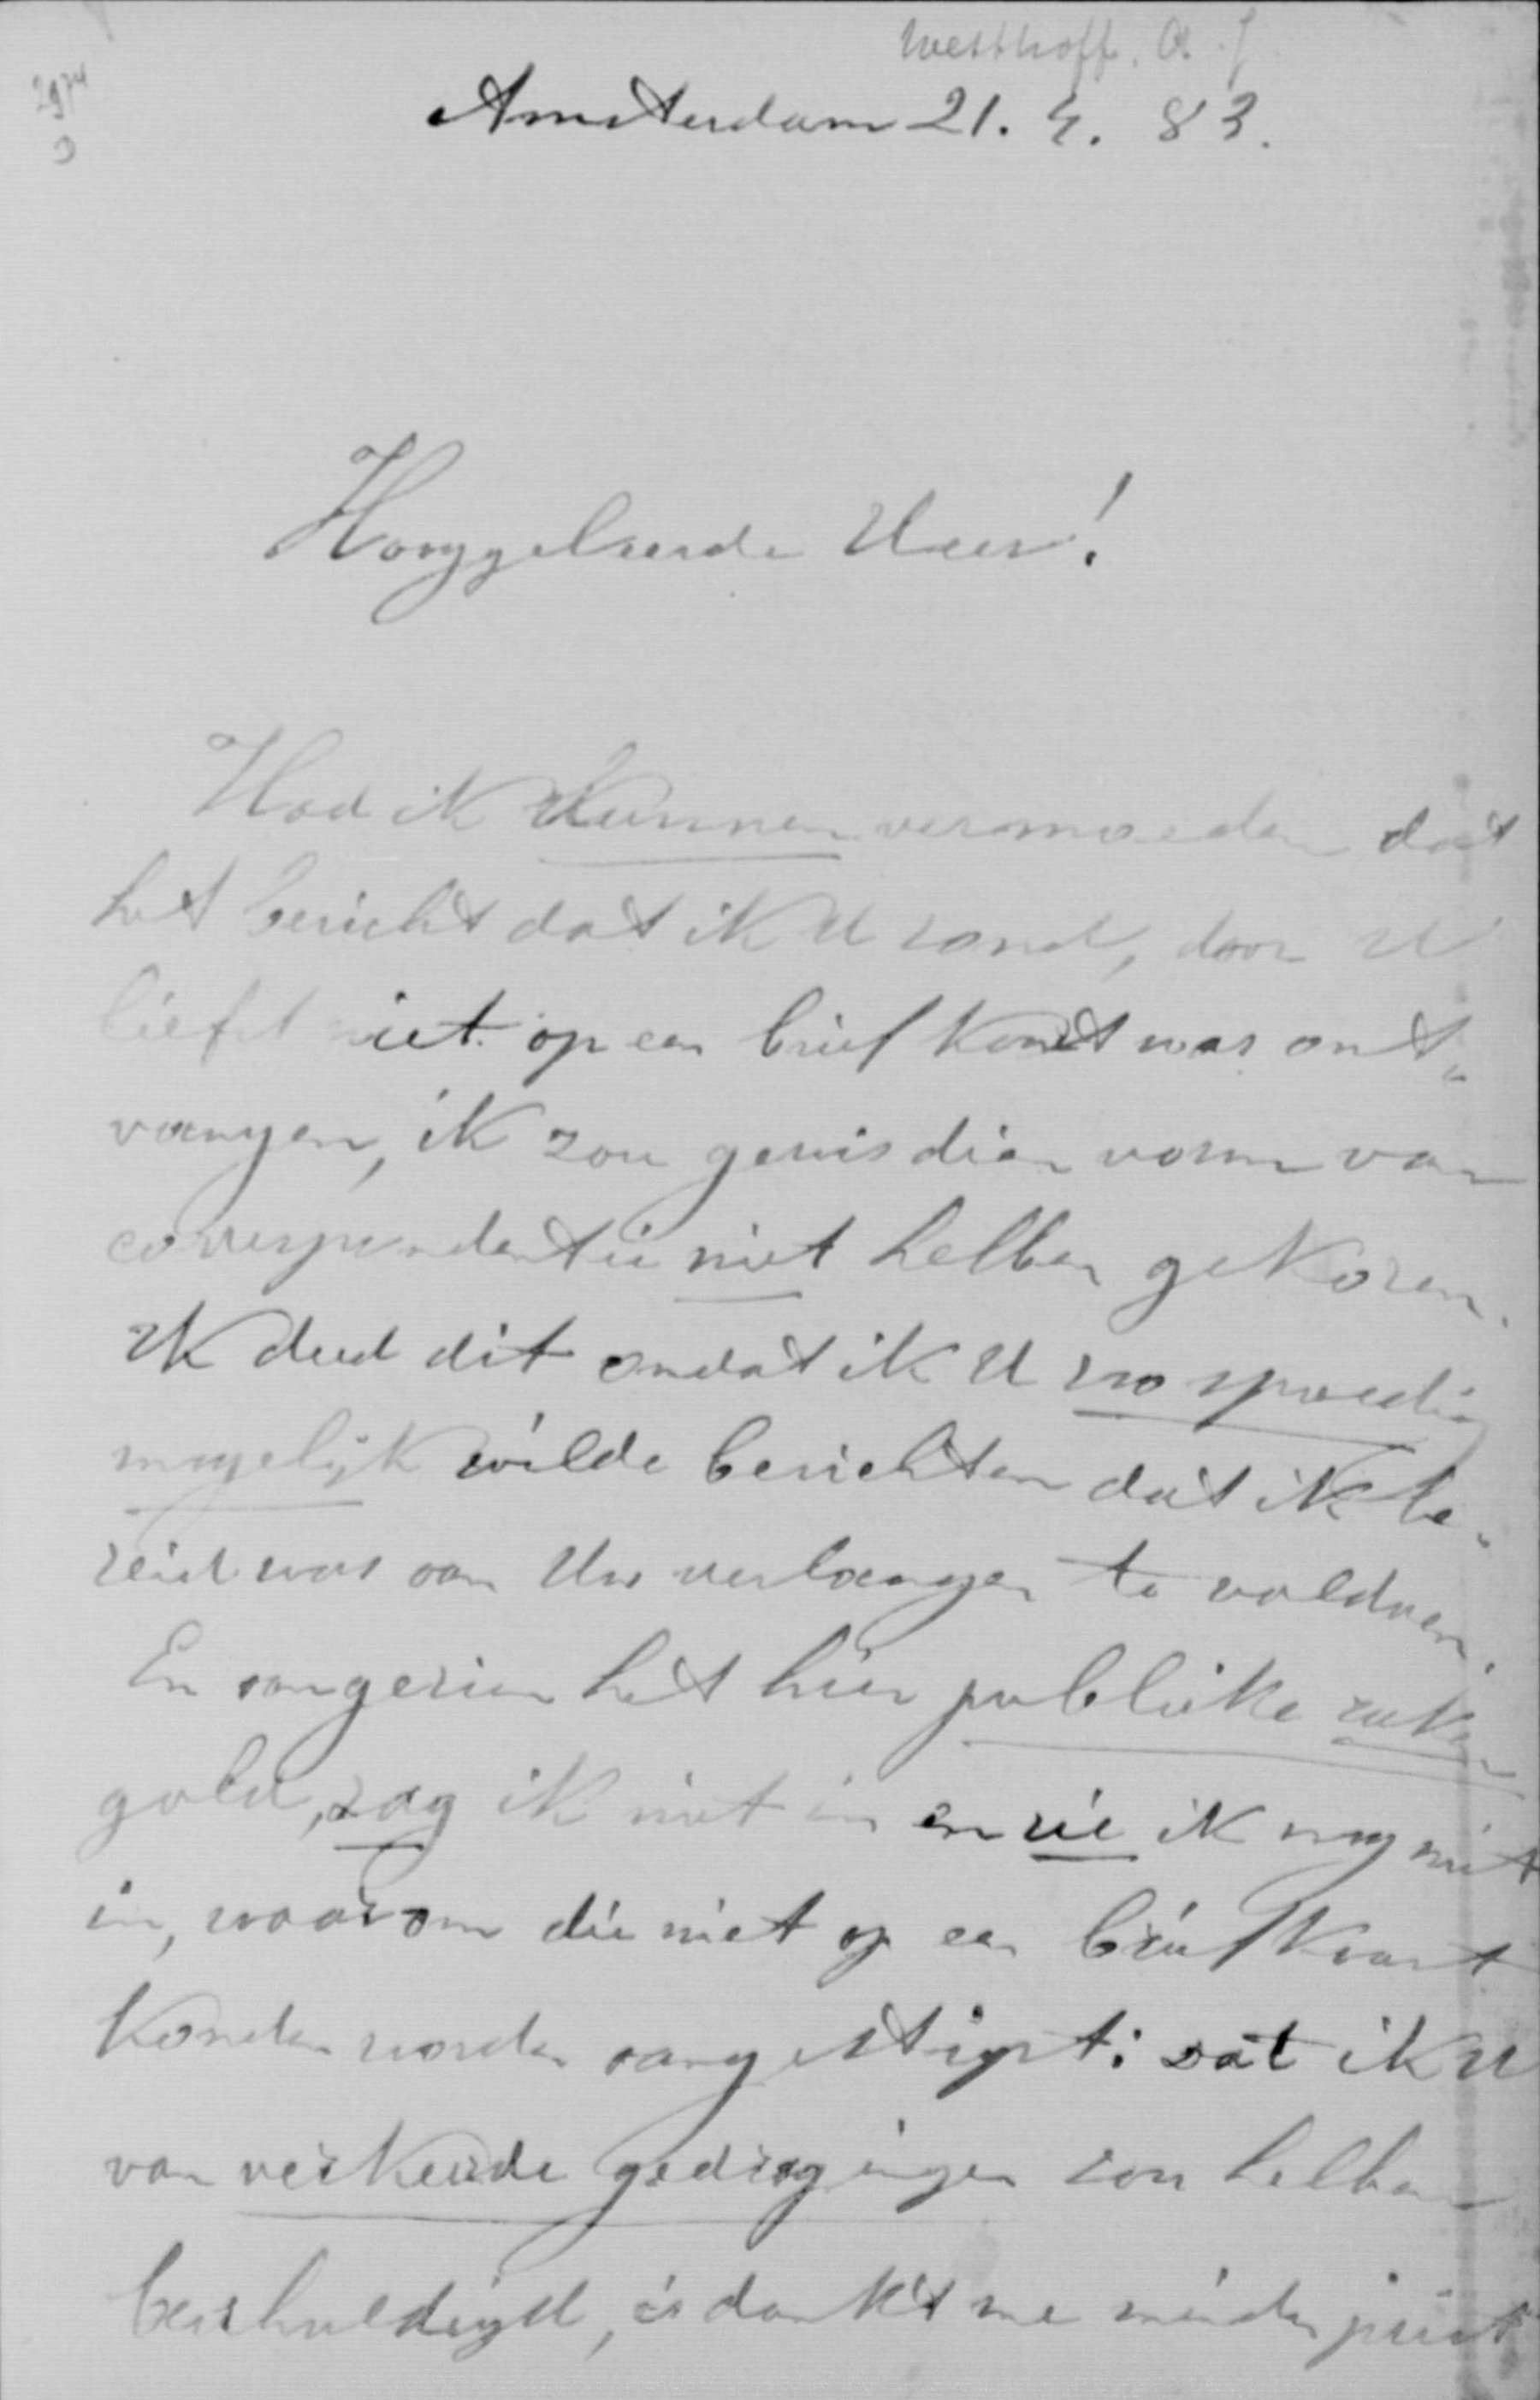 Westhoff. A. J.
2974
Amsterdam 21. 4. 83.
Hooggeleerde Heer!
Had ik kunnen vermoeden dat
het bericht dat ik U zond, door U
liefst niet op een briefkaart was ont„
vangen, ik zou gewis dien vorm van
correspondentie niet hebben gekozen.
Ik deed dit omdat ik U zoo spoedig
mogelijk wilde berichten dat ik be„
reid was aan Uw verlangen te voldoen.
En aangezien het hier publieke zaken
gold, zag ik niet in en zie ik nog niet
in, waarom die niet op een briefkaart
konden worden aangestipt: dat ik U
van verkeerde gedragingen zou hebben
beschuldigd, is dunkt me minder juist